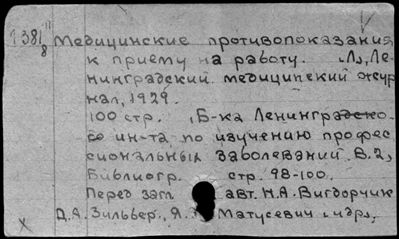 1381 Медицинские противопоказания
8 к приему на работу. Л., Ле-
нинградский медицинский жур
нал, 1929.
100 стр. (Б-ка Ленинградско-
го ин-та по изучению профес
сиональных заболеваний. В. 2,
Библиогр. стр. 98-100.
Перед загл авт. Н.А. Вигдорчик
Д.А. Зильбер, Я. Матусевич и др.